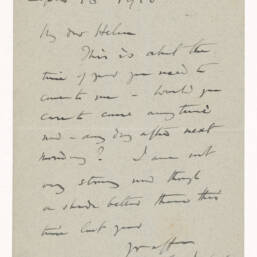 My dear Helen
This is about the
time of year you used to
come to me – would you
care to come anytime
now – any day after next
Monday? I am not
very strong now though
a shade better than this
time last year
Yr aff